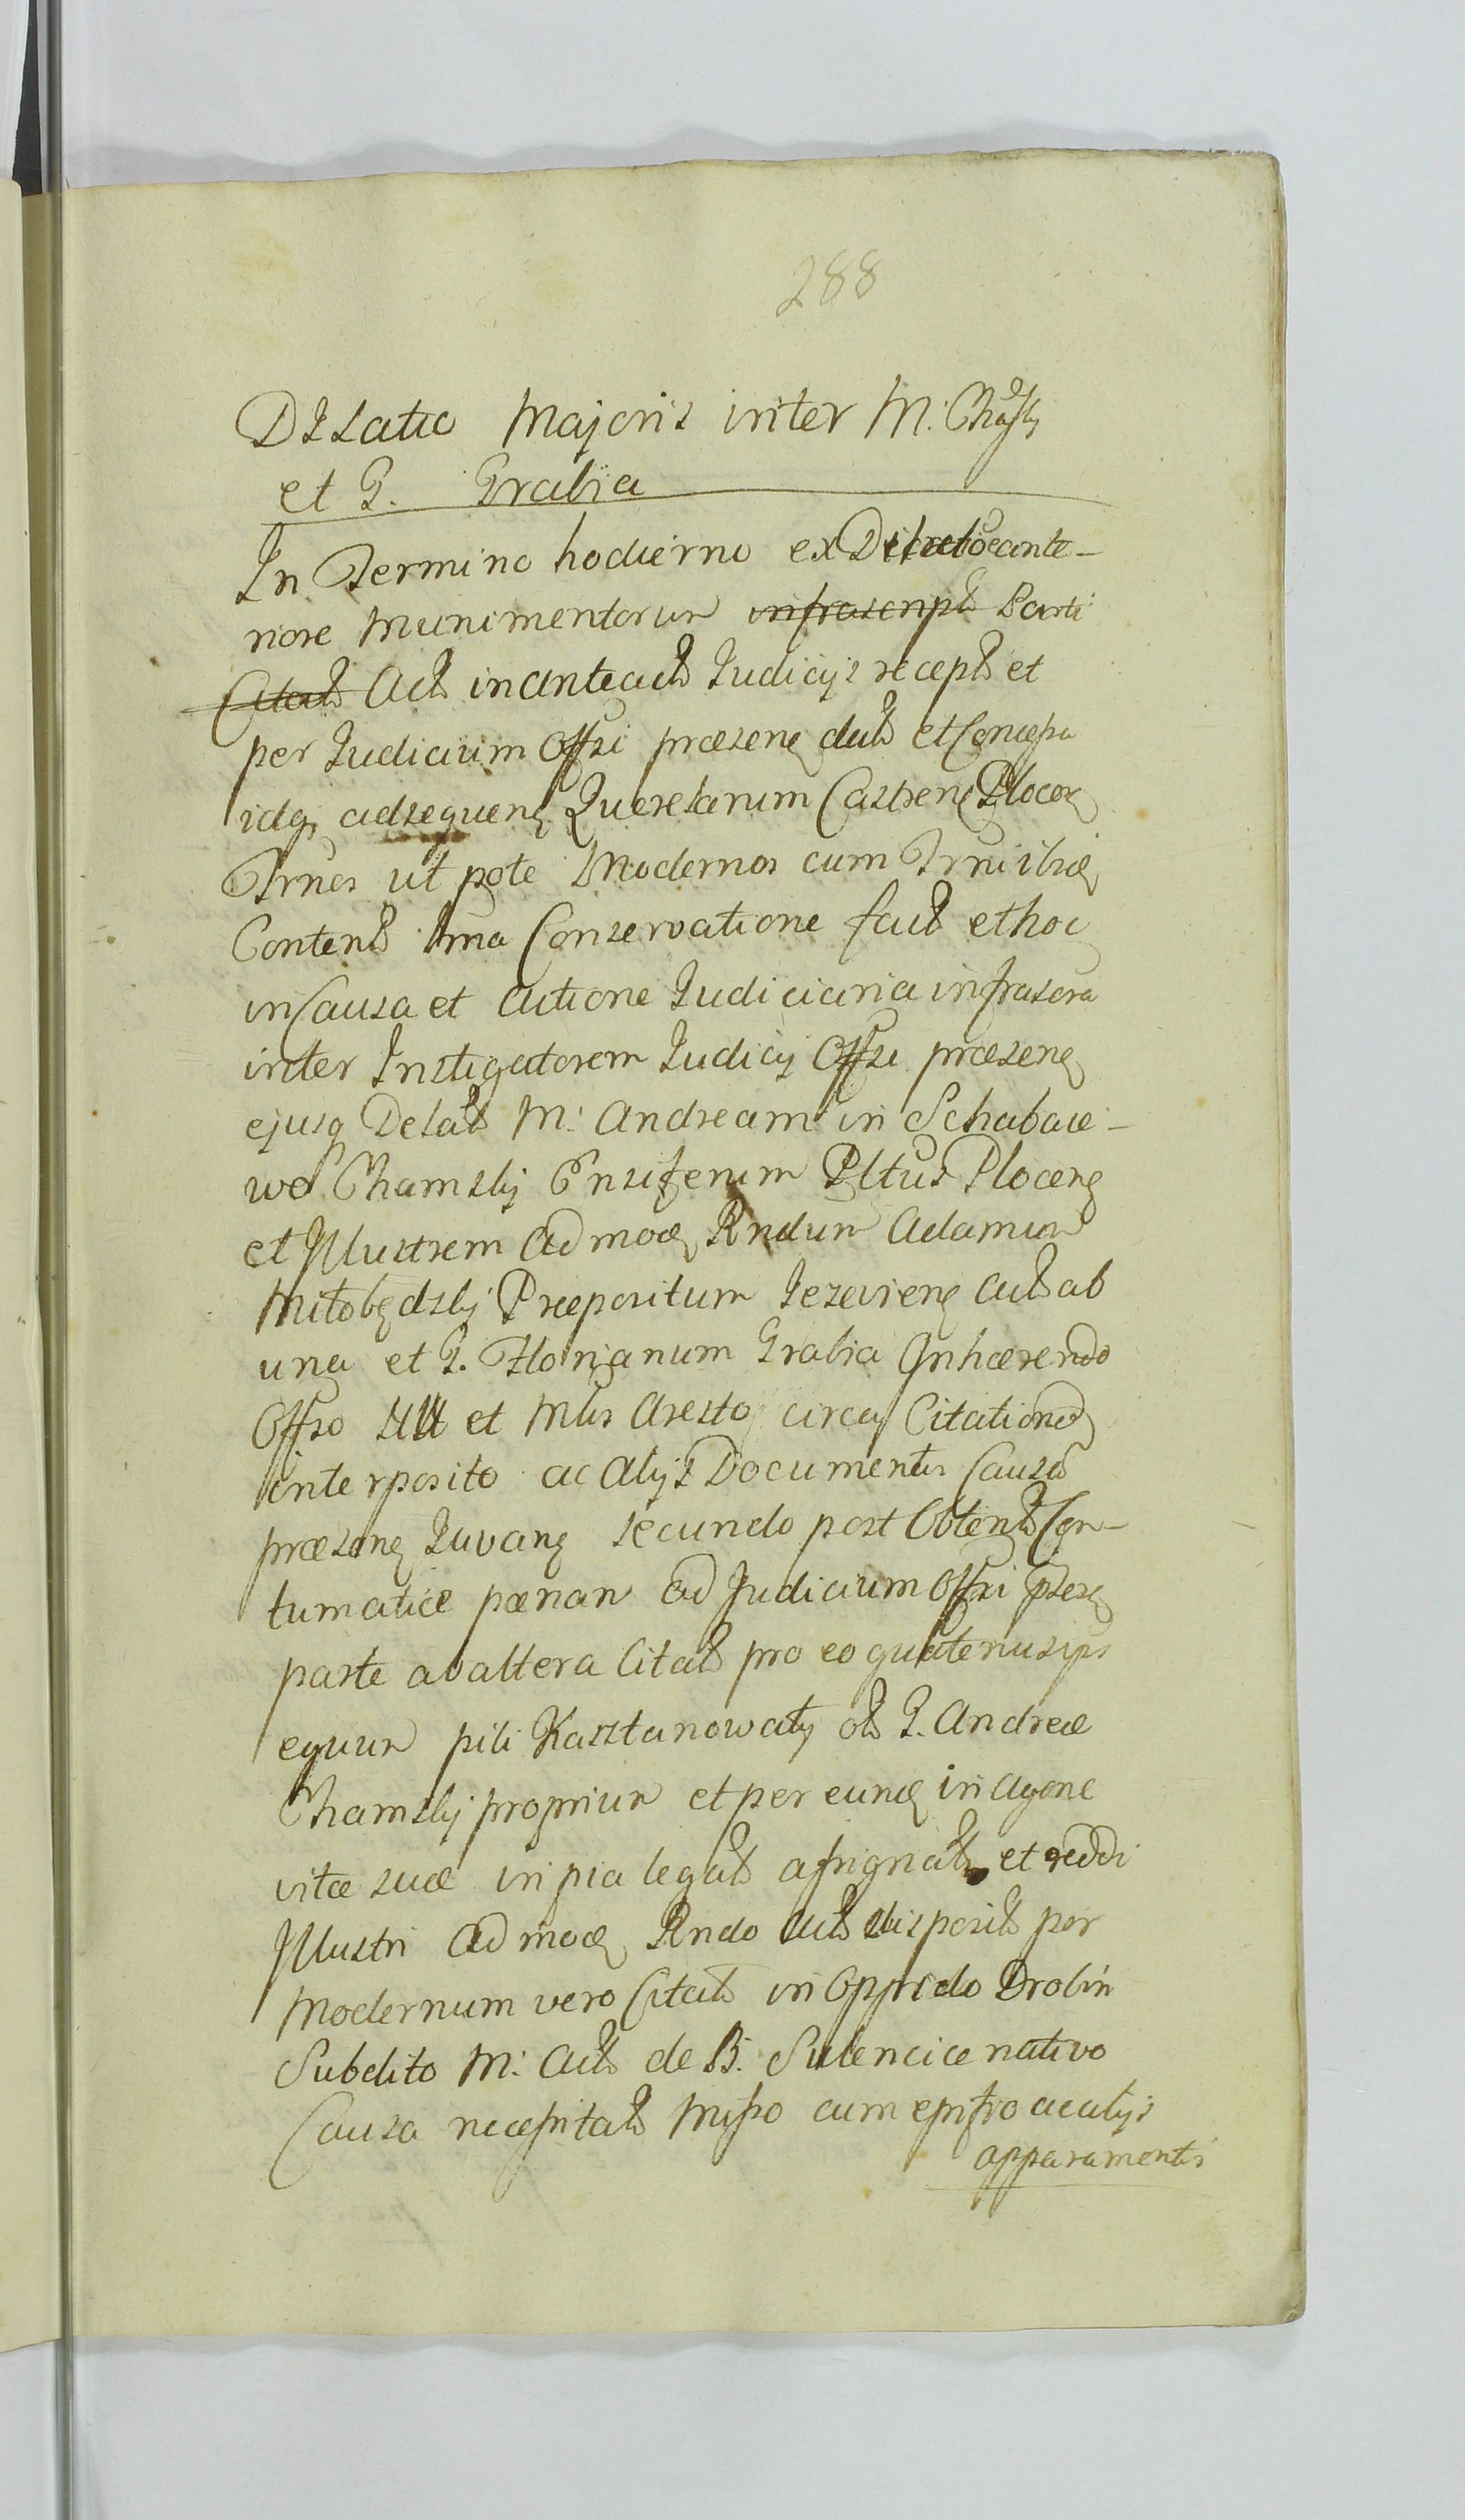 288
Dilatio Majoris inter M. Chasky
et G. Grabia
In Termino hodierno ex Dilatione ante-
riore munimentorum infrascript Parti
Citato Acto in anteacto Judicijs recepto et
per Judicium Offii præsens dato et Concepa
idq adsequens Querelarum Castrens Plocens
Trnes ut pote Modernos cum Trni ibid
Contento Tma Conservatione facto et hoc
in Causa et Actione Judiciaria infrascra
inter Instigatorem Judicij Offsi præsens
ejusq Delato M. Andream in Schabaie-
wo Chamskij Ensiferum Pltus Plocens
et Illustrem Admod Rndum Adamum
Miłobędzkij Præpositum Jezeviens Acto ab
una et G. Florianum Grabia Inhærendo
Offso et Mlis Aresto circa Citationem
interposito ac Alijs Documentis Causam
præsens Juvans secundo post Obtento Con-
tumaciæ pænam ad Judicium Offsi præsens
parte ab altera Citato pro eo quatenus ips
equum pili Kasztanowaty olo G. Andreæ
Chamskij proprium et per eund in agone
vitæ suæ in pia legato assignato et reddi
Illustri Admod Rndo Acto disposito per
Modernum vero Citato in Oppido Drobin
Subdito M. Acto de B. Sulencice nativo
Causa necessitato Misso cum ephio ac alijs
apparamentis